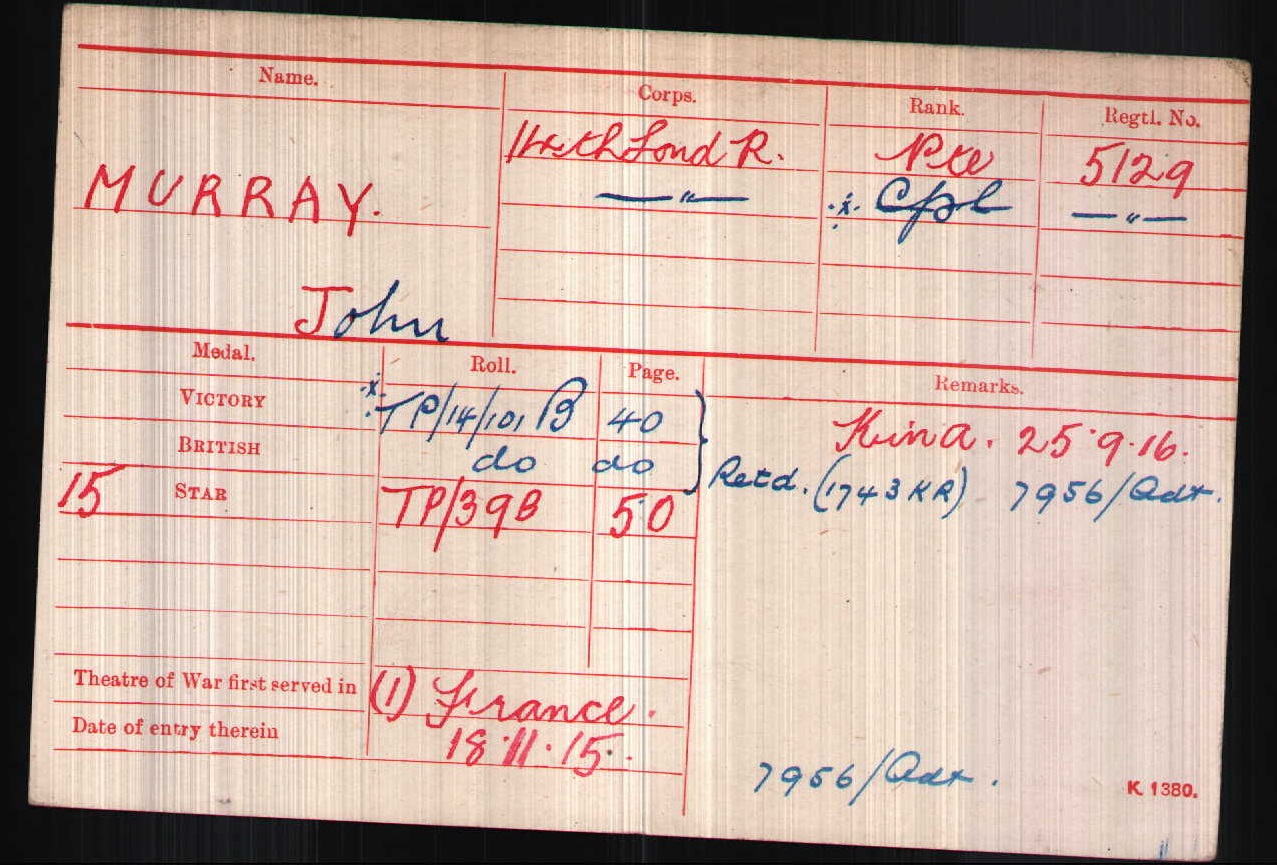 Name. Corps. Rank. Regtl. No.
14th Lond R. Pte 5129
MURRAY. —"— *Cpl —"—
John
Medal. Roll. Page. Remarks.
VICTORY *TP/14/101 B 40 K in a. 25.9.16.
BRITISH do do Retd. (1743 KR) 7956/Adt.
15 STAR TP/39B 50
Theatre of War first served in (1) France.
Date of entry therein 18.11.15.
7956/Adt. K. 1380.